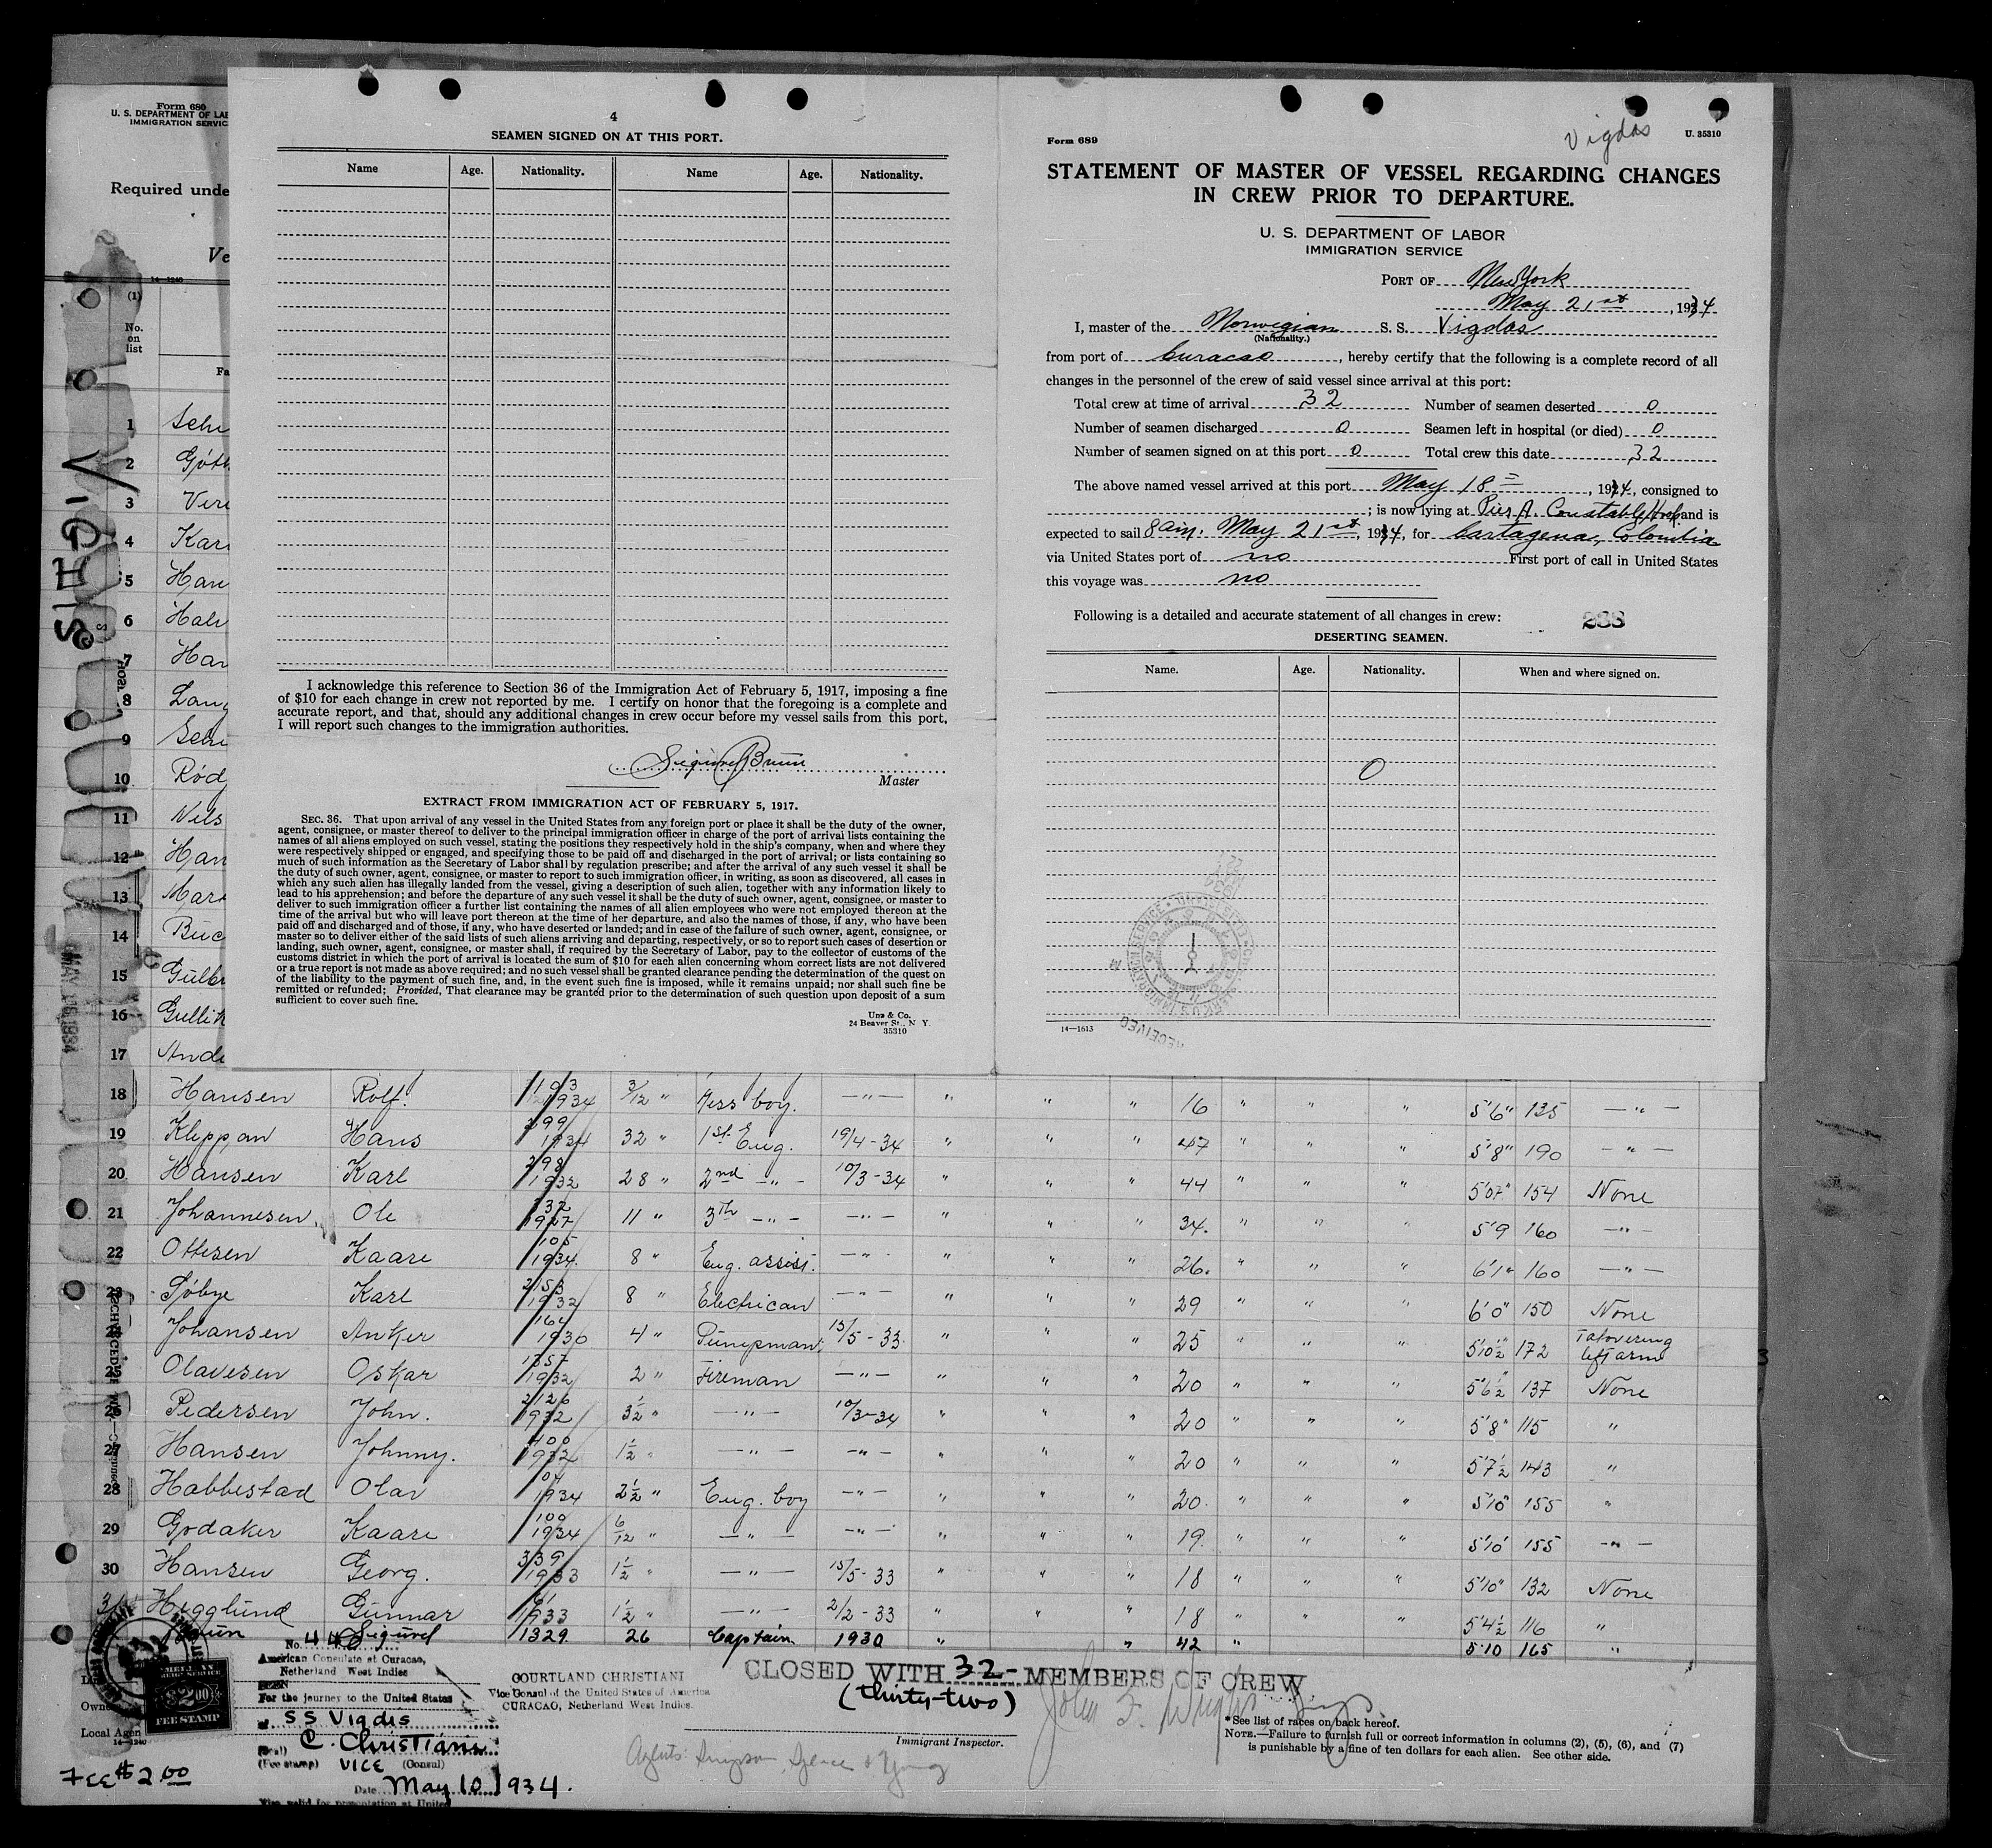 Form 680
U. S. DEPARTMENT OF LAB
IMMIGRATION SERVIC
Required unde
Ve
14—1240
(1)
No.
on
list
Fa
VIGDIS
1 Sch
2 Gøth
3 Ver
4 Kar
5 Han
6 Hal
7 Han
8 Lang
9 Sch
10 Rød
11 Nils
12 Han
13 Mar
14 Buc
15 Gulb
16 Gullik
17 Ande
MAY 18 1934
4
SEAMEN SIGNED ON AT THIS PORT.
Name Age. Nationality. Name Age. Nationality.
I acknowledge this reference to Section 36 of the Immigration Act of February 5, 1917, imposing a fine
of $10 for each change in crew not reported by me. I certify on honor that the foregoing is a complete and
accurate report, and that, should any additional changes in crew occur before my vessel sails from this port,
I will report such changes to the immigration authorities.
Sigurd Bruun
Master
EXTRACT FROM IMMIGRATION ACT OF FEBRUARY 5, 1917.
SEC. 36. That upon arrival of any vessel in the United States from any foreign port or place it shall be the duty of the owner,
agent, consignee, or master thereof to deliver to the principal immigration officer in charge of the port of arrival lists containing the
names of all aliens employed on such vessel, stating the positions they respectively hold in the ship's company, when and where they
were respectively shipped or engaged, and specifying those to be paid off and discharged in the port of arrival; or lists containing so
much of such information as the Secretary of Labor shall by regulation prescribe; and after the arrival of any such vessel it shall be
the duty of such owner, agent, consignee, or master to report to such immigration officer, in writing, as soon as discovered, all cases in
which any such alien has illegally landed from the vessel, giving a description of such alien, together with any information likely to
lead to his apprehension; and before the departure of any such vessel it shall be the duty of such owner, agent, consignee, or master to
deliver to such immigration officer a further list containing the names of all alien employees who were not employed thereon at the
time of the arrival but who will leave port thereon at the time of her departure, and also the names of those, if any, who have been
paid off and discharged and of those, if any, who have deserted or landed; and in case of the failure of such owner, agent, consignee, or
master so to deliver either of the said lists of such aliens arriving and departing, respectively, or so to report such cases of desertion or
landing, such owner, agent, consignee, or master shall, if required by the Secretary of Labor, pay to the collector of customs of the
customs district in which the port of arrival is located the sum of $10 for each alien concerning whom correct lists are not delivered
or a true report is not made as above required; and no such vessel shall be granted clearance pending the determination of the quest on
of the liability to the payment of such fine, and, in the event such fine is imposed, while it remains unpaid; nor shall such fine be
remitted or refunded; Provided, That clearance may be granted prior to the determination of such question upon deposit of a sum
sufficient to cover such fine.
Unz & Co.
24 Beaver St., N. Y.
35310
Vigdas
Form 689
U. 35310
STATEMENT OF MASTER OF VESSEL REGARDING CHANGES
IN CREW PRIOR TO DEPARTURE.
U. S. DEPARTMENT OF LABOR
IMMIGRATION SERVICE
PORT OF New York
May 21st, 1934
I, master of the Norwegian S. S. Vigdas
(Nationality.)
from port of Curacao, hereby certify that the following is a complete record of all
changes in the personnel of the crew of said vessel since arrival at this port:
Total crew at time of arrival 32 Number of seamen deserted 0
Number of seamen discharged 0 Seamen left in hospital (or died) 0
Number of seamen signed on at this port 0 Total crew this date 32
The above named vessel arrived at this port May 18, 1934, consigned to
; is now lying at Pier A. Constable Hook and is
expected to sail 8 am. May 21st, 1934, for Cartagena, Colombia
via United States port of no First port of call in United States
this voyage was no
Following is a detailed and accurate statement of all changes in crew: 288
DESERTING SEAMEN.
Name. Age. Nationality. When and where signed on.
0
RECEIVED
14—1613
18 Hansen Rolf. 1193 1934 3/12 " Mess boy. —"— " " " 16 " " " 5'6" 135 —"—
19 Kleppan Hans 299 1934 32 " 1st Eng. 19/4-34 " " " 47 " " " 5'8" 190 —"—
20 Hansen Karl 298 1932 28 " 2nd —"— 10/3-34 " " " 44 " " " 5'07" 154 None
21 Johannesen Ole 332 1927 11 " 3th —"— —"— " " " 34. " " " 5'9 160 —"—
22 Ottesen Kaare 105 1934 8 " Eng. assist. —"— " " " 26. " " " 6'1" 160 —"—
23 Søbye Karl 2153 1932 8 " Electrican —"— " " " 29 " " " 6'0" 150 None
24 Johansen Anker 164 1930 4 " Pumpman 15/5-33 " " " 25 " " " 5'10½" 172 Tatovering left arm
25 Olavesen Oskar 1357 1932 2 " Fireman —"— " " " 20 " " " 5'6½" 137 None
26 Pedersen John. 2126 1932 3½ " —"— 10/3-34 " " " 20 " " " 5'8" 115 "
27 Hansen Johnny. 400 1932 1½ " —"— —"— " " " 20 " " " 5'7½ 143 "
28 Habbestad Olav 104 1934 2½ " Eng. boy —"— " " " 20. " " " 5'10" 155 "
29 Godaker Kaare 100 1934 6/12 " —"— —"— " " " 19. " " " 5'10' 155 —"—
30 Hansen Georg. 339 1933 1½ " —"— 15/5-33 " " " 18 " " " 5'10" 132 None
31 Hegglund Gunnar 61 1933 1½ " —"— 2/2-33 " " " 18 " " " 5'4½ 116 "
Bruun Sigurd 1329 26 Captain 1930 " " 42 " 5'10 165 "
No. 440
American Consulate at Curacao,
Netherland West Indies
SEEN
For the journey to the United States
of SS Vigdis
C. Christiani
(Seal)
(Fee stamp) VICE (Consul)
Date May 10 1934.
$2.00
FEE STAMP
Owne
Local Agen
14—1240
FEE $2.00
COURTLAND CHRISTIANI
Vice Consul of the United States of America
CURACAO, Netherland West Indies.
CLOSED WITH 32- MEMBERS OF CREW
(thirty-two)
Immigrant Inspector.
*See list of races on back hereof.
NOTE.—Failure to furnish full or correct information in columns (2), (5), (6), and (7)
is punishable by a fine of ten dollars for each alien. See other side.